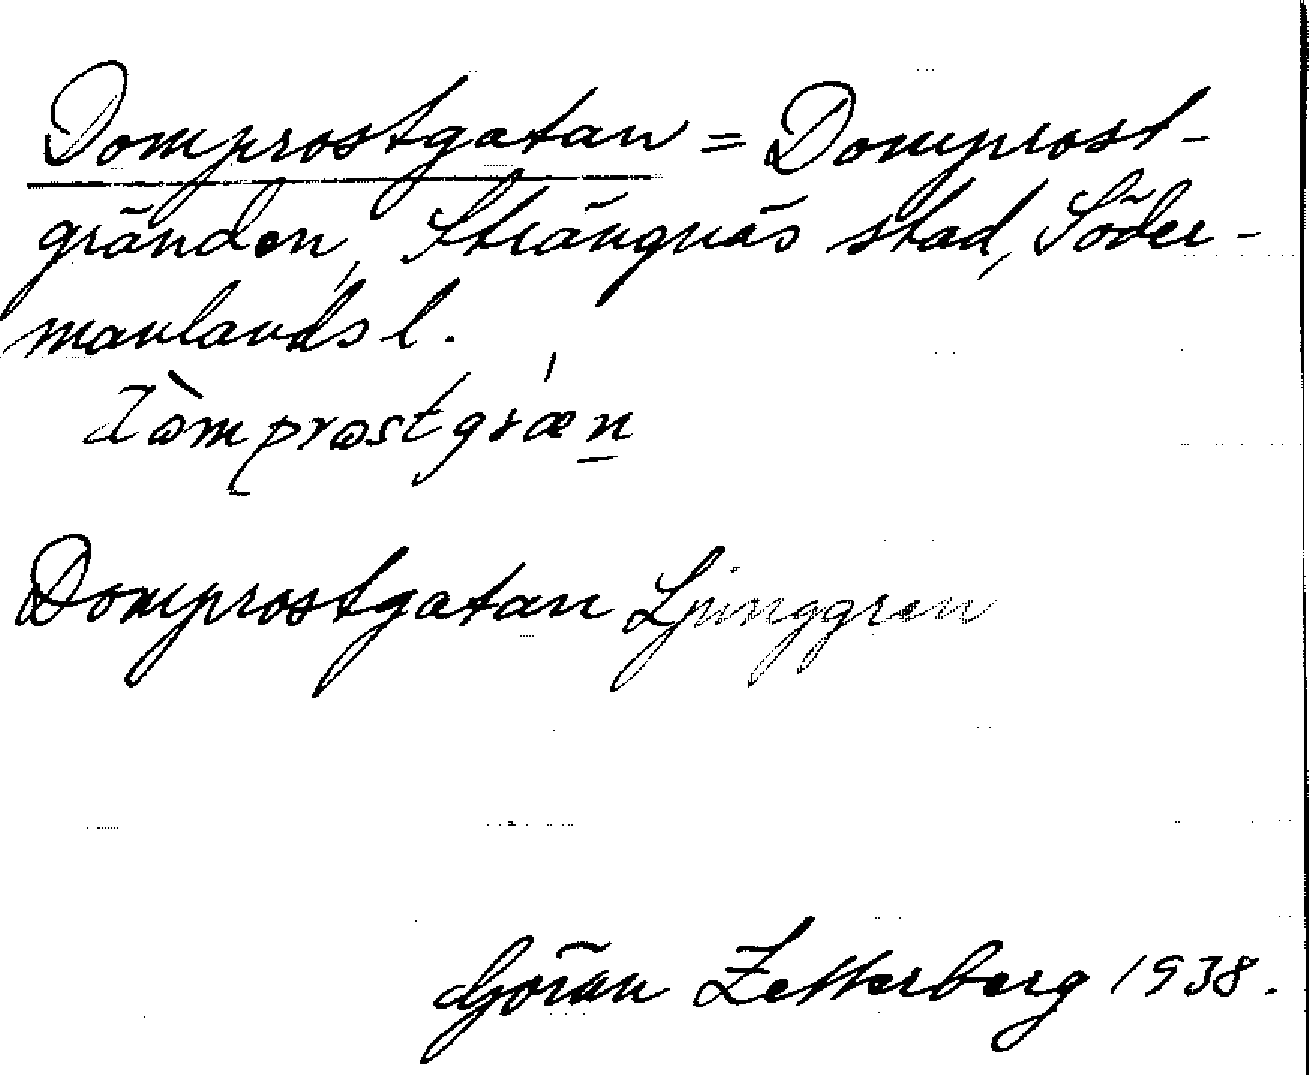 Domprostgatan = Domprost-
gränden, Strängnäs stad, Söder-
manlands l.
dòmprostgræ´n
Domprostgatan Ljunggren
Göran Zetterberg 1938.